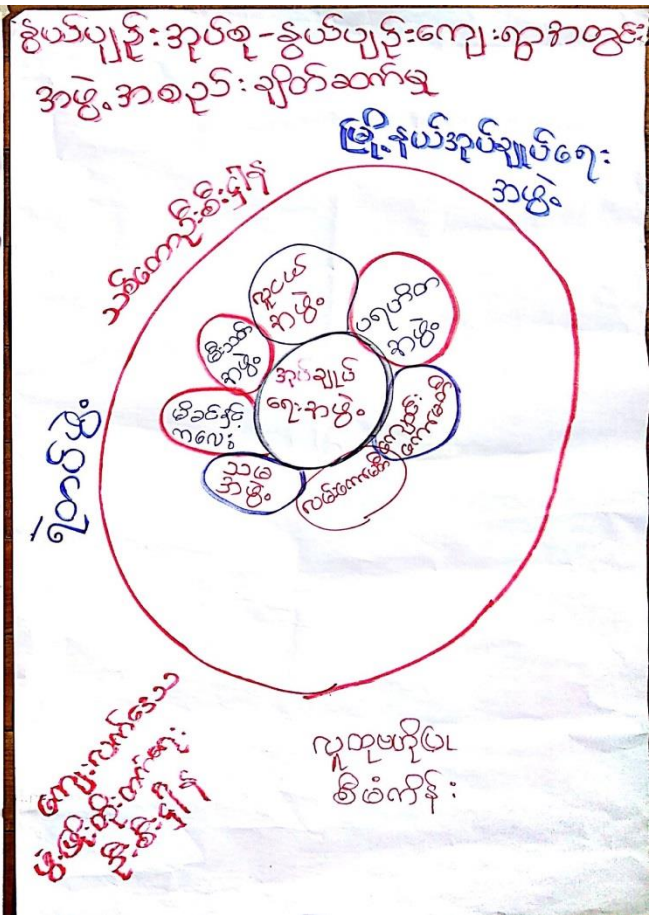 နွယ်ပျဉ်းအုပ်စု-နွယ်ပျဉ်းကျေးရွာအတွင်း
အဖွဲ့အစည်းချိတ်ဆက်မှု
မြို့နယ်အုပ်ချုပ်ရေး
အဖွဲ့
သစ်တောဦးစီးဌာန
လူငယ်
အဖွဲ့
ပရဟိတ
အဖွဲ့
မီးသတ်
အဖွဲ့
အုပ်ချုပ်
ရေးအဖွဲ့
မိခင်နှင့်
ကလေး
ကျောင်း
ကော်မတီ
သမ
အဖွဲ့
လမ်းကော်မတီ
ရဲတပ်ဖွဲ့
ကျေးလက်ဒေသ
ဖွံ့ဖြိုးတိုးတက်ရေး
ဦးစီးဌာန
လူထုဗဟိုပြု
စီမံကိန်း